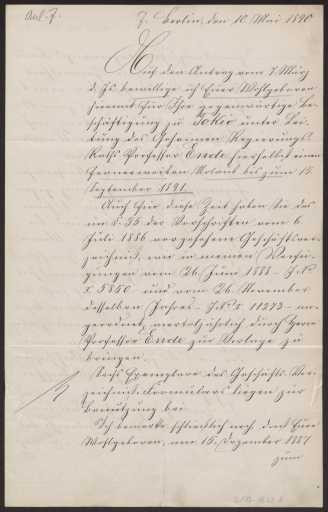 Anl. 7.
J. Berlin, den 10. Mai 1890
Auf den Antrag vom 7. März
d. Js. bewillige ich Euer Wohlgeboren
hiermit für Ihre gegenwärtige Be-
schäftigung zu Tokio unter Lei-
tung des Geheimen Regierungs-
Raths Professor Ende hierselbst einen
ferneren Urlaub bis zum 15.
September 1891.
Auch für diese Zeit haben Sie das
im §. 35 der Vorschriften vom 6.
Juli 1886 vorgesehene Geschäftsver-
zeichniß, wie in meinen Verfü-
gungen vom 26. Juni 1888
5850 und vom 26. November
desselben Jahres 11273 an-
geordnet, vierteljährlich durch Herrn
Professor Ende zur Vorlage zu
bringen.
Sechs Exemplare des Geschäfts-Ver-
zeichniß-Formulars liegen zur
Benutzung bei.
Ich bemerke schließlich noch, daß Euer
Wohlgeboren, am 15. Dezember 1887
zum